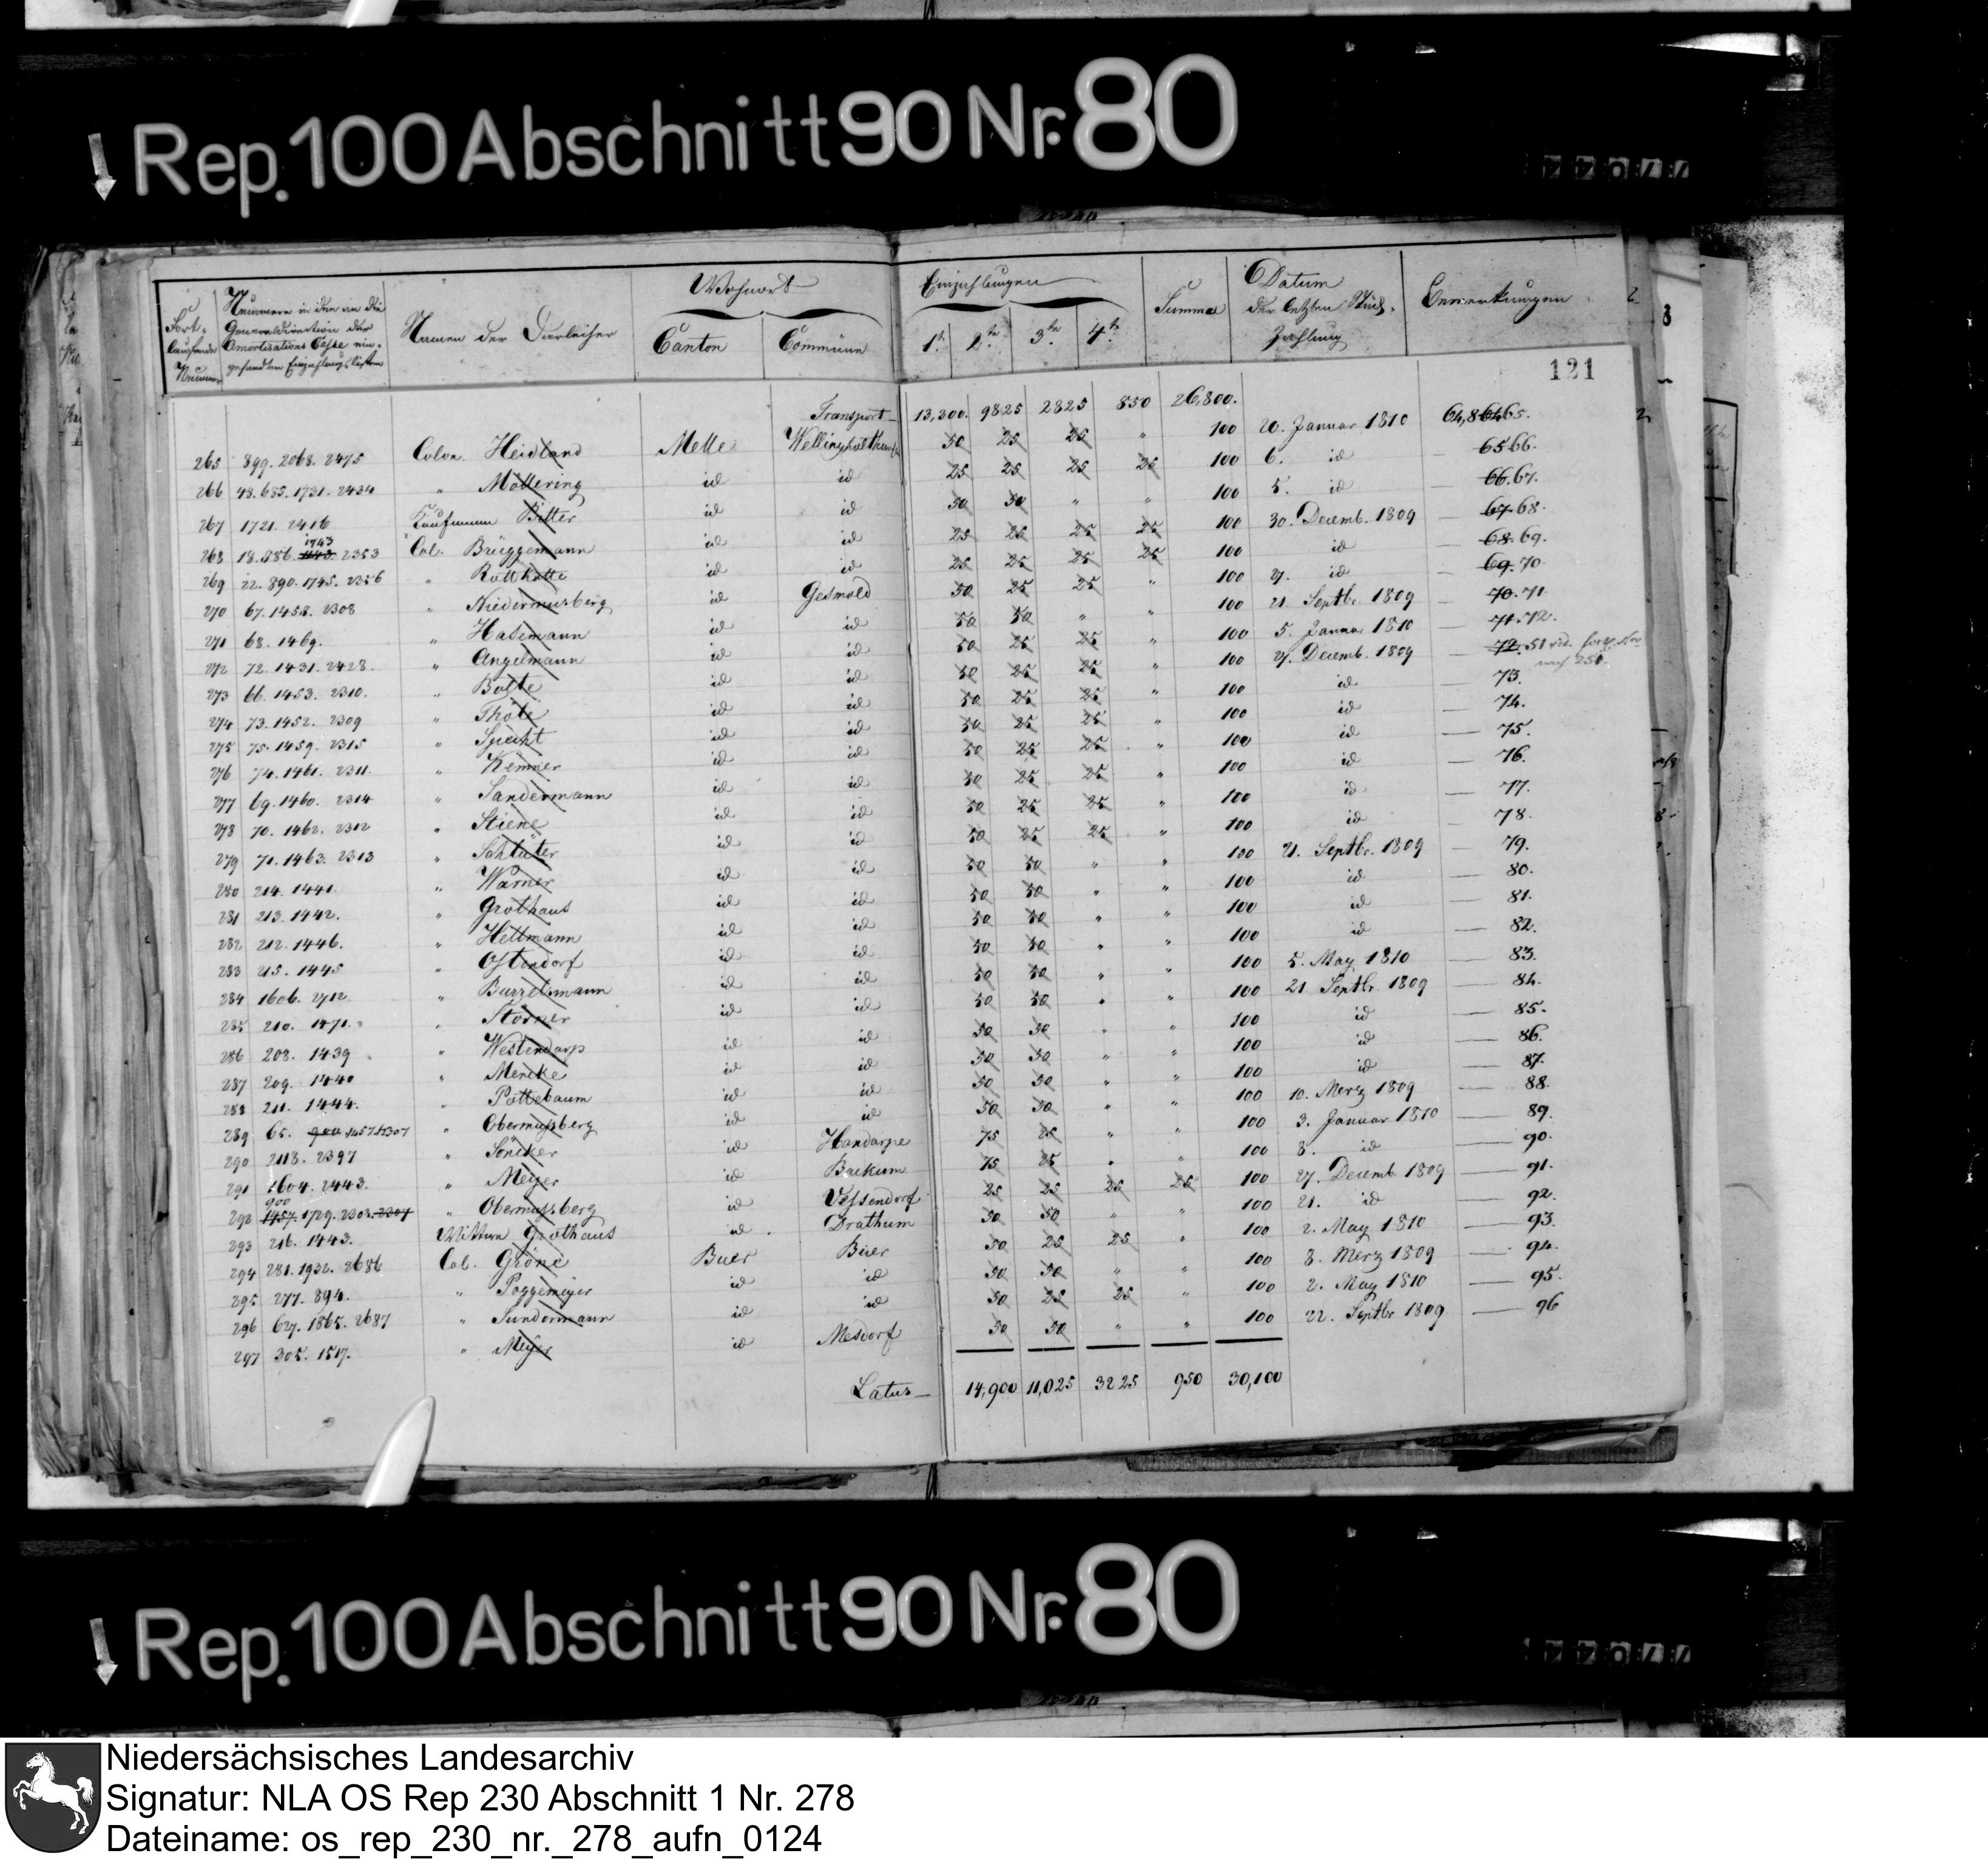 Rep. 100 Abschnitt 90 Nr. 80
Fort-laufende Nummer | Nummern in den an die Generaldirection der Amortisations Casse eingesandten Einzahlungslisten | Namen der Darleiher | Wohnort | Einzahlungen | Summa | Datum der letzten Rück-Zahlung | Bemerkungen
Canton | Commüne | 1te | 2te | 3te | 4te
121
Transport 13,300. 9825 2825 850 26,800.
265 899. 2068. 2475 Colon. Heidland Melle Wellingholthausen 50 25 25 " 100 20. Januar 1810 64,864 65.
266 48. 655. 1731. 2434 " Möllering id id 25 25 25 25 100 6. id 65 66.
267 1721. 2416 Kaufmann Bitter id id 50 50 " " 100 5. id 66. 67.
268 18. 886. 1143. 1743 2353 Col. Brüggemann id id 25 25 25 25 100 30. Decemb. 1809 67. 68.
269 22. 890. 1745. 2356 " Rottholte id id 25 25 25 25 100 id 68. 69.
270 67. 1458. 2308 " Niedermusberg id Gesmold 50 25 25 " 100 27. id 69. 70
271 68. 1469. " Hasemann id id 50 50 " " 100 21. Septbr. 1809 70. 71.
272 72. 1431. 2428. " Angelmann id id 50 25 25 " 100 5. Januar 1810 71. 72.
273 66. 1453. 2310. " Bolte id id 50 25 25 " 100 27. Decemb. 1809 72. 51
274 73. 1452. 2309 " Thöle id id 50 25 25 " 100 id 73.
275 75. 1459. 2315 " Specht id id 50 25 25 " 100 id 74.
276 74. 1461. 2311. " Kemner id id 50 25 25 " 100 id 75.
277 69. 1460. 2314 " Sandermann id id 50 25 25 " 100 id 76.
278 70. 1462. 2312 " Stiene id id 50 25 25 " 100 id 77.
279 71. 1463. 2313 " Schlüter id id 50 25 25 " 100 id 78.
280 214. 1441. " Warner id id 50 50 " " 100 21. Septbr. 1809 79.
281 213. 1442. " Grothaus id id 50 50 " " 100 id 80.
282 212. 1446. " Hellmann id id 50 50 " " 100 id 81.
283 215. 1445 " Ostendorf id id 50 50 " " 100 id 82.
284 1606. 2712. " Burrelsmann id id 50 50 " " 100 5. May 1810 83.
285 210. 1471. " Störner id id 50 50 " " 100 21 Septbr. 1809 84.
286 208. 1439 " Westendarp id id 50 50 " " 100 id 85.
287 209. 1440 " Mencke id id 50 50 " " 100 id 86.
288 211. 1444. " Pottebaum id id 50 50 " " 100 id 87.
289 65. 900 1457. 2307 " Obermusberg id id 50 50 " " 100 10. Merz 1809 88.
290 2118. 2397 " Söncker id Handarpe 75 25 " " 100 3. Januar 1810 89.
291 1604. 2443. " Meyer id Backum 75 25 " " 100 8. id 90.
292 1457. 900 1729. 2302. 2307 " Obermusberg id Vessendorf 25 25 25 25 100 27. Decemb. 1809 91.
293 216. 1443. Wittwe Grothaus id Drathum 50 50 " " 100 21. id 92.
294 281. 1932. 2686 Col. Gröne Buer Buer 50 25 25 " 100 2. May 1810 93.
295 277. 894. " Poggemeyer id id 50 50 " " 100 8. Merz 1809 94.
296 627. 1865. 2687 " Sundermann id id 50 25 25 " 100 2. May 1810 95.
297 305. 1517. " Meyer id Mesdorf 50 50 " " 100 22. Septbr 1809 96
Latus 14,900 11,025 3225 950 30,100
Rep. 100 Abschnitt 90 Nr. 80
Niedersächsisches Landesarchiv
Signatur: NLA OS Rep 230 Abschnitt 1 Nr. 278
Dateiname: os_rep_230_nr._278_aufn_0124